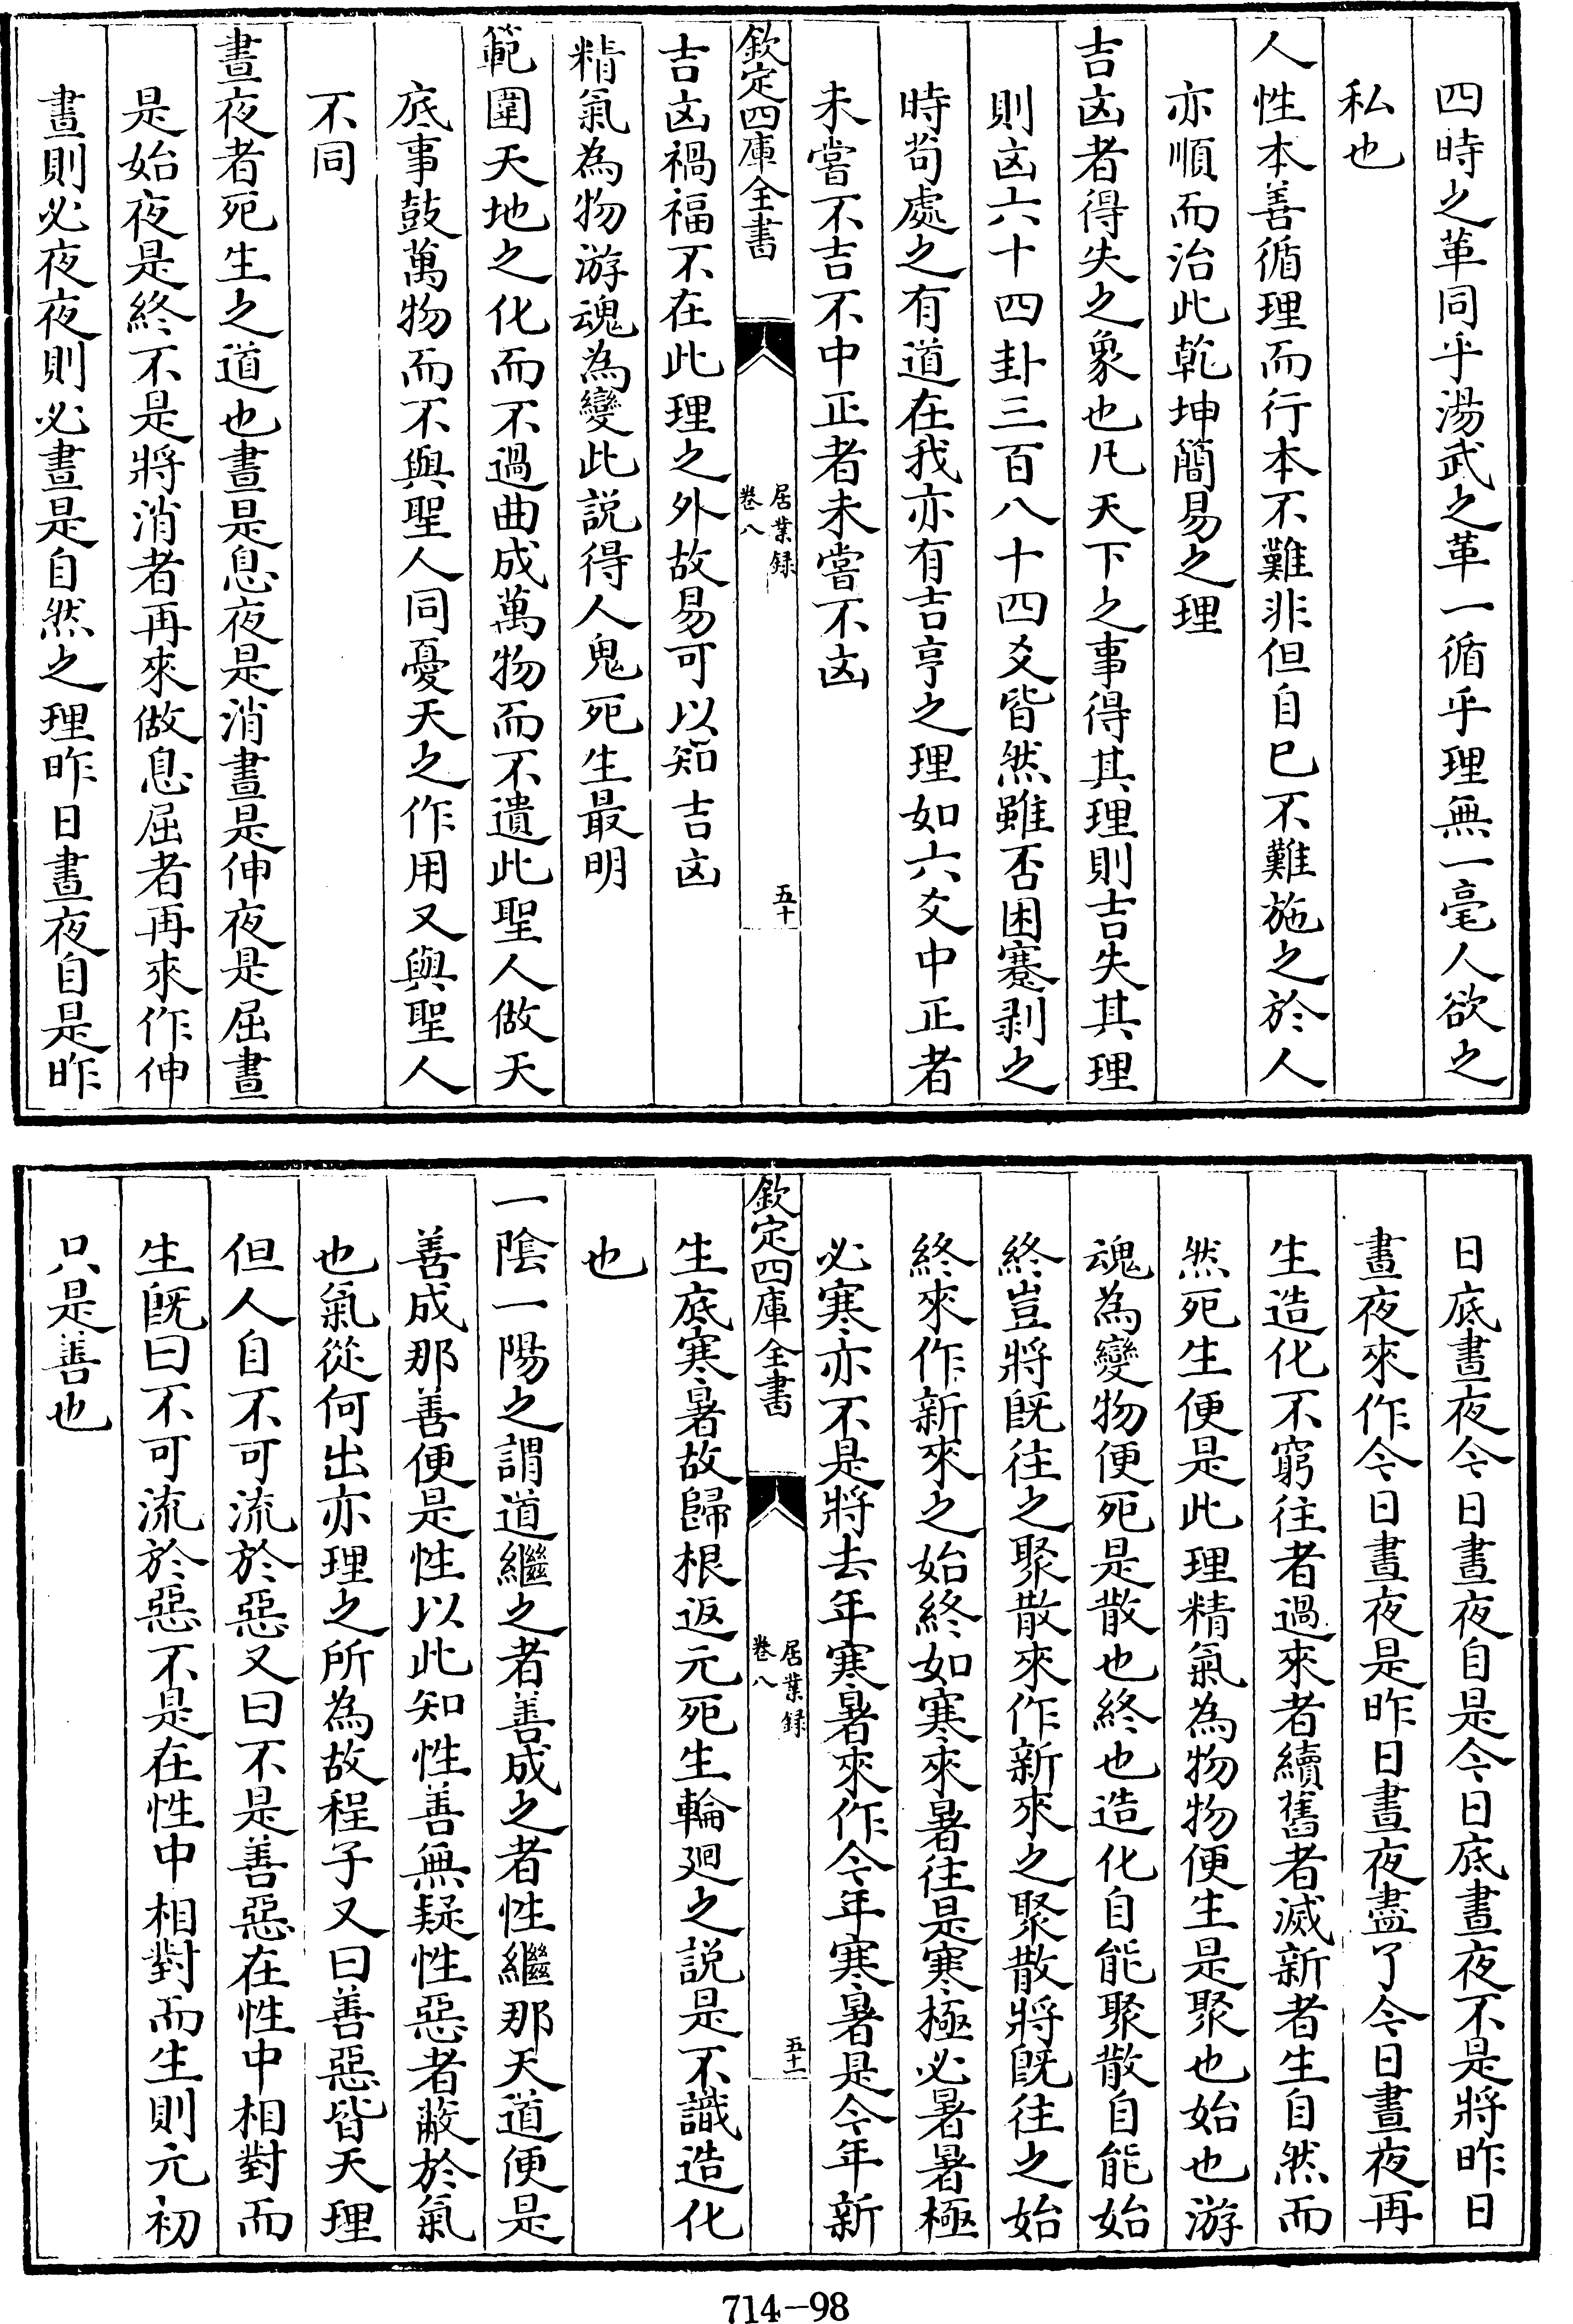 四時之革同乎湯武之革一循乎理無一毫人欲之
私也
人性本善循理而行本不難非但自已不難施之於人
亦順而治此乾坤簡易之理
吉凶者得失之象也凡天下之事得其理則吉失其理
則凶六十四卦三百八十四爻皆然雖否困蹇剥之
時茍處之有道在我亦有吉亨之理如六爻中正者
未嘗不吉不中正者未嘗不凶
欽定四庫全書
居業録
卷八
五十
吉凶禍福不在此理之外故易可以知吉凶
精氣為物游魂為變此説得人鬼死生最明
範圍天地之化而不過曲成萬物而不遺此聖人做天
底事鼓萬物而不與聖人同憂天之作用又與聖人
不同
晝夜者死生之道也晝是息夜是消晝是伸夜是屈晝
是始夜是終不是將消者再來做息屈者再來作伸
晝則必夜夜則必晝是自然之理昨日晝夜自是昨
日底晝夜今日晝夜自是今日底晝夜不是將昨日
晝夜來作今日晝夜是昨日晝夜盡了今日晝夜再
生造化不窮往者過來者續舊者滅新者生自然而
然死生便是此理精氣為物物便生是聚也始也游
魂為變物便死是散也終也造化自能聚散自能始
終豈將既往之聚散來作新來之聚散將既往之始
終來作新來之始終如寒來暑往是寒極必暑暑極
必寒亦不是將去年寒暑來作今年寒暑是今年新
欽定四庫全書
居業録
卷八
五十一
生底寒暑故歸根返元死生輪廻之説是不識造化
也
一陰一陽之謂道繼之者善成之者性繼那天道便是
善成那善便是性以此知性善無疑性惡者蔽於氣
也氣從何出亦理之所為故程子又曰善惡皆天理
但人自不可流於惡又曰不是善惡在性中相對而
生既曰不可流於惡不是在性中相對而生則元初
只是善也
714-98